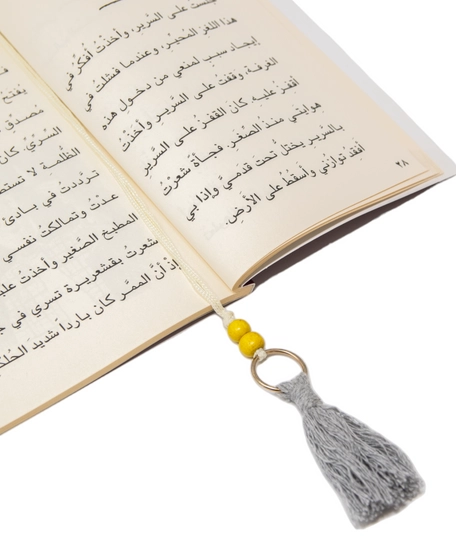 جلست على السرير، وأخذت أفكر في
هذا اللغز المحير، وعندما فشلت في
إيجاد سبب لمنعي من دخول هذه
الغرفة، وقفت على السرير وأخذت
أقفز عليه. كان القفز على السرير
هوايتي منذ الصغر. فجأة شعرت
بالسرير يختل تحت قدمي وإذا بي
أفقد توازني وأسقط على الأرض.
٢٨
يفتح
مصدق
السري. كان
الظلمة. لا تستط
ترددت في بادئ
عدت وتمالكت نفسي
المطبخ الصغير وأخذت علب
شعرت بقشعريرة تسري في ج
إذ أنّ الممر كان بارداً شديد الحلك